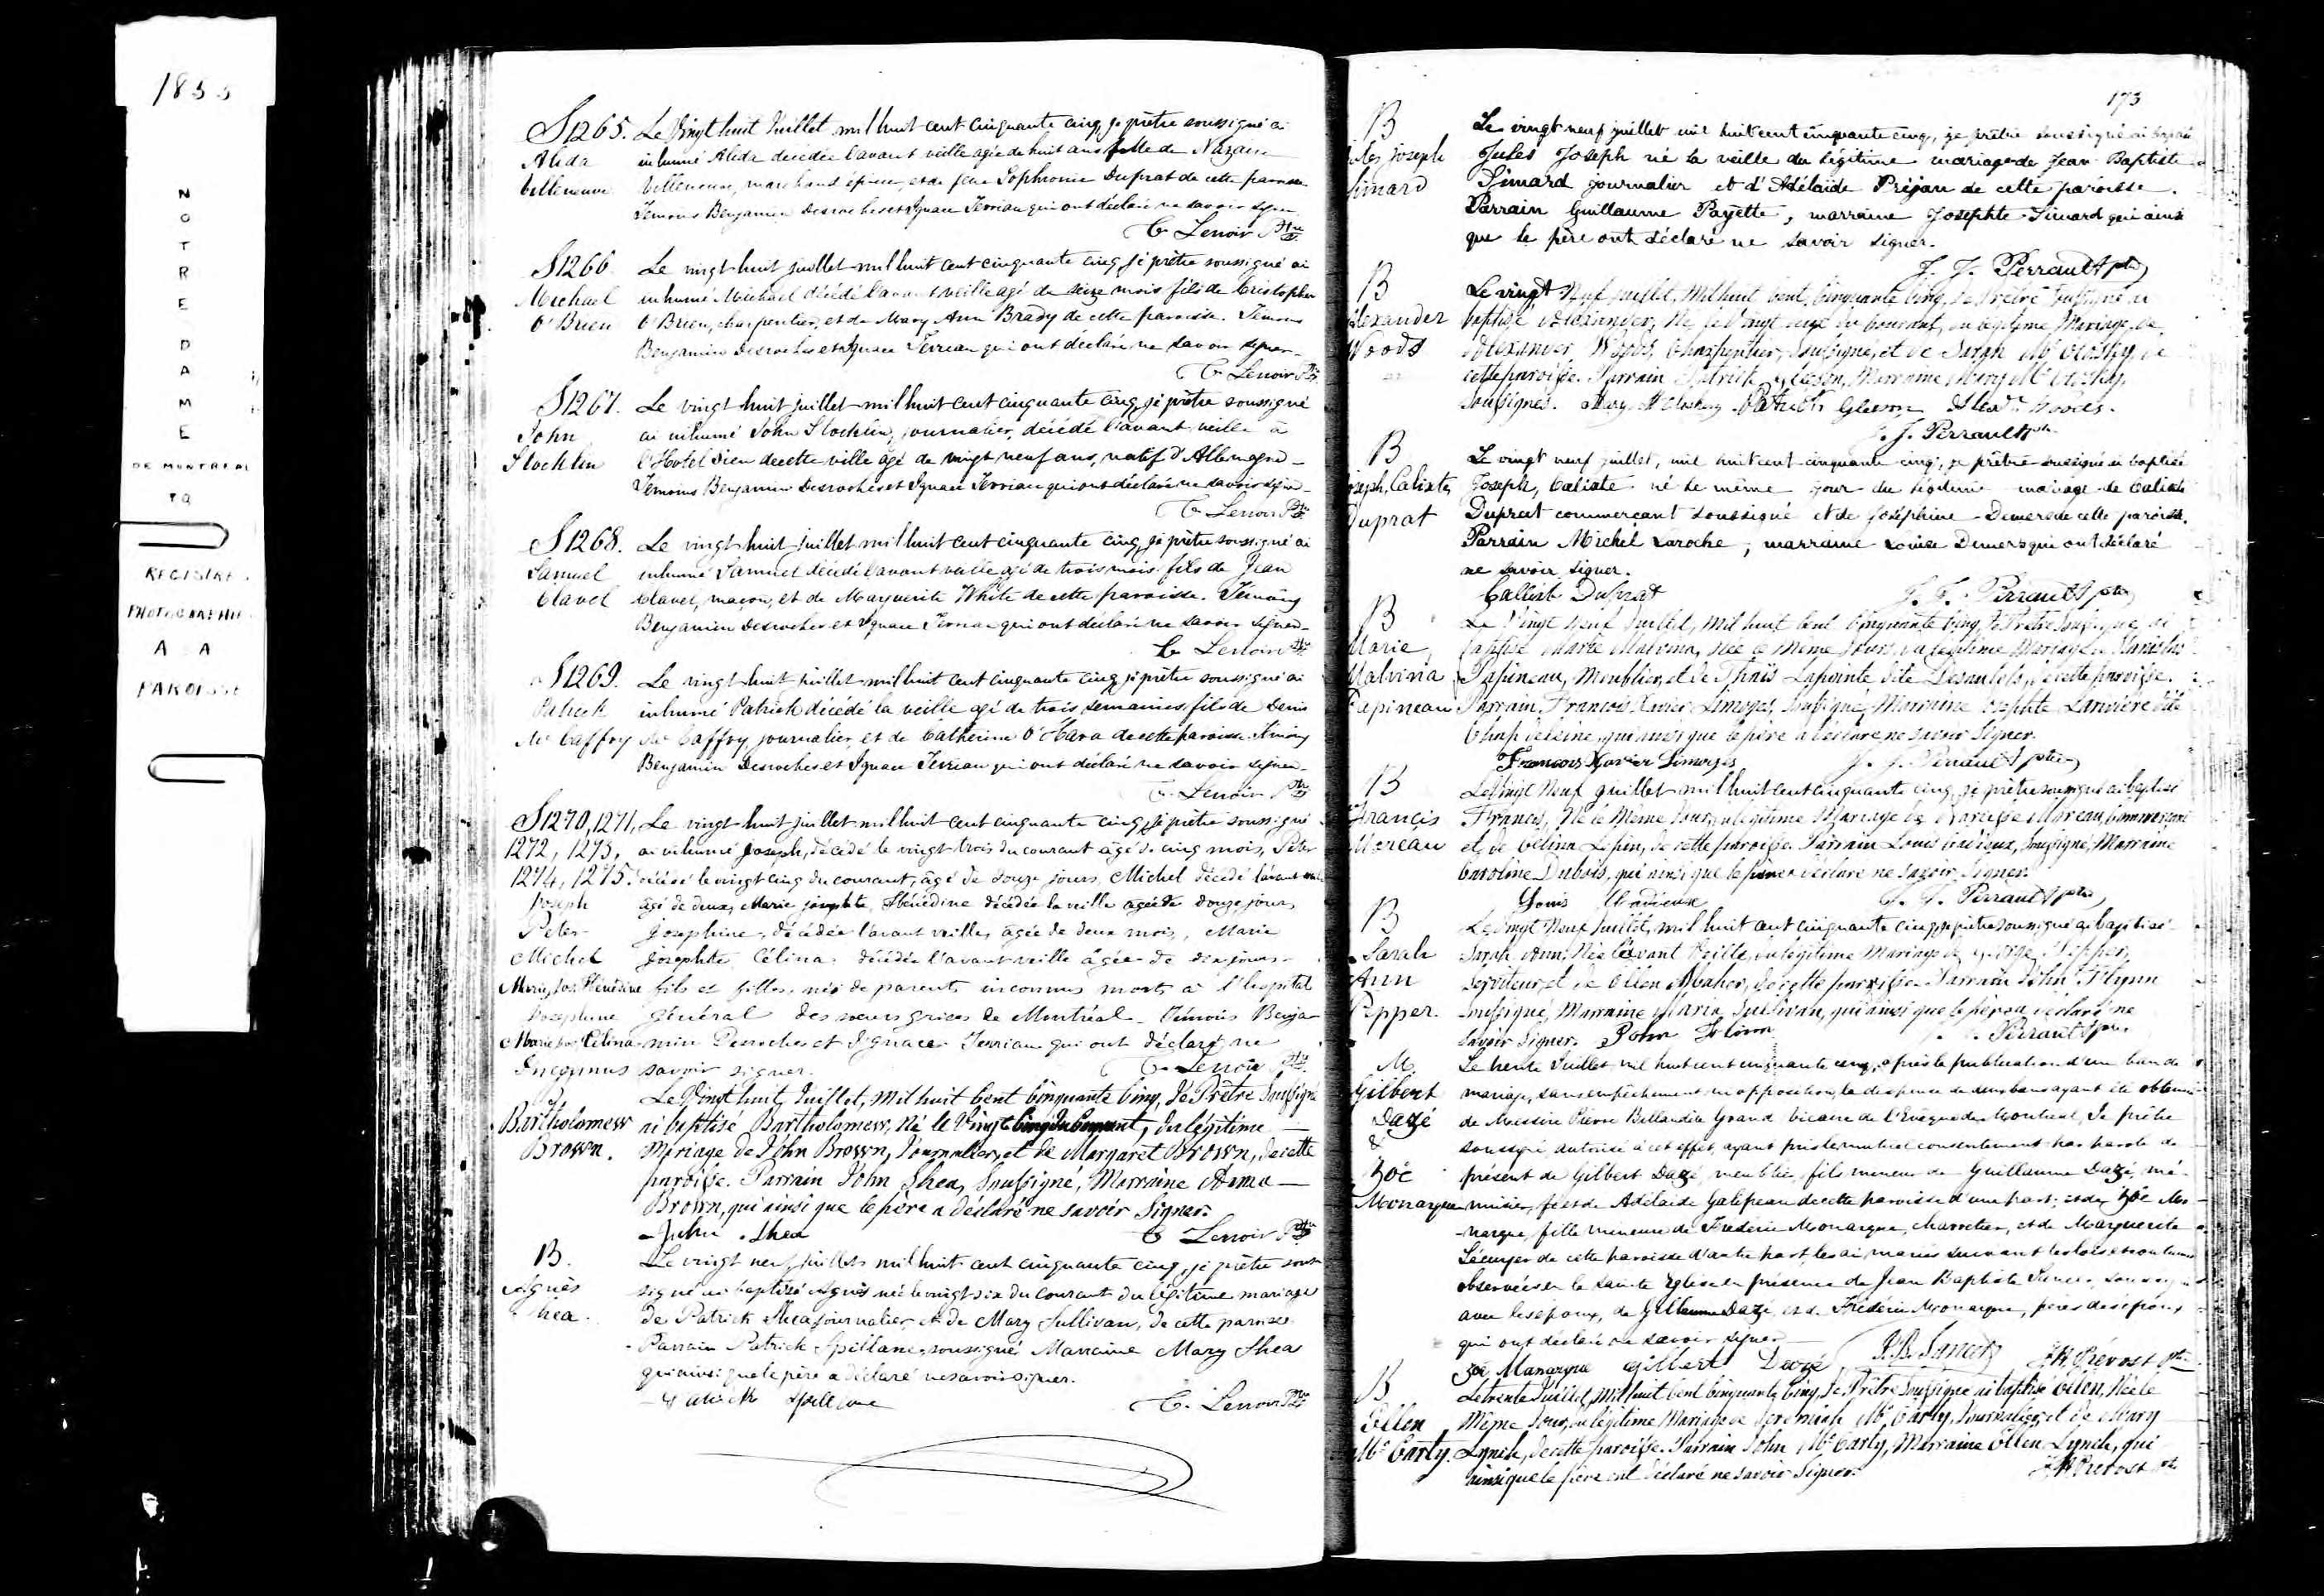 1855
NOTRE DAME
DE MONTREAL
REGISTRE
PHOTOGRAPHIE
A LA
PAROISSE
S1265. Le Vingt huit Juillet mil huit cent cinquante cinq, je prêtre soussigné ai
Alida inhumé Alida décédée l'avant veille agée de huit ans fille de Nazaire
Villeneuve Villeneuve, marchand épicier, et de feue Sophronie Duprat de cette paroisse
Témoins Benjamin Desroches et Ignace Terriau qui ont déclaré ne savoir signer
C. Lenoir Ptre
S1266 Le vingt huit juillet mil huit cent cinquante cinq je prêtre soussigné ai
Michael inhumé Michael décédé l'avant veille agé de seize mois fils de Cristopher
O'Brien O'Brien, charpentier, et de Mary Ann Brady de cette paroisse. Témoins
Benjamin Desroches et Ignace Terriau qui ont déclaré ne savoir signer
C. Lenoir Ptre
S1267. Le vingt huit juillet mil huit cent cinquante cinq, je prêtre soussigné
John ai inhumé John Stocklin, journalier, décédé l'avant veille à
Stocklin l'Hotel Dieu de cette ville agé de vingt neuf ans, natif d'Allemagne
Témoins Benjamin Desroches et Ignace Terriau qui ont déclaré ne savoir signer
C. Lenoir Ptre
S1268. Le vingt huit juillet mil huit cent cinquante cinq, je prêtre soussigné ai
Samuel inhumé Samuel décédé l'avant veille agé de trois mois fils de Jean
Clavel Clavel, maçon, et de Marguerite White de cette paroisse. Témoins
Benjamin Desroches et Ignace Terriau qui ont déclaré ne savoir signer
C. Lenoir Ptre
S1269. Le vingt huit juillet mil huit cent cinquante cinq je prêtre soussigné ai
Patrick inhumé Patrick décédé la veille agé de trois semaines, fils de Denis
Mc Caffry Mc Caffry journalier, et de Catherine O'Hara de cette paroisse. Témoins
Benjamin Desroches et Ignace Terriau qui ont déclaré ne savoir signer
C. Lenoir Ptre
S1270, 1271, Le vingt huit juillet mil huit cent cinquante cinq, je prêtre soussigné
1272, 1273, ai inhumé Joseph, décédé le vingt trois du courant âgé de cinq mois, Peter
1274, 1275. décédé le vingt cinq du courant, âgé de douze jours, Michel décédé l'avant
Joseph âgé de deux, Marie Josephte décédée la veille agée de douze jours,
Peter Josephine, décédée l'avant veille, âgée de deux mois, Marie
Michel Josephte Célina, décédée l'avant veille âgée de dix jours
Marie Jos. fils et filles, nés de parents inconnus morts à l'hopital
Josephine Général des soeurs grises de Montréal. Témoins Benja
Marie Jos. Célina min Desroches et Ignace Terriau qui ont déclaré ne
Inconnus savoir signer.
C. Lenoir Ptre
B Le Vingt huit Juillet, Mil huit Cent Cinquante Cinq, Je Prêtre Soussigné
Bartholomew ai baptisé Bartholomew, Né le Vingt Cinq du Courant, du légitime
Brown. Mariage de John Brown, Journalier, et de Margaret Brown, de cette
paroisse. Parrain John Shea, Soussigné, Marraine Anna
Brown, qui ainsi que le père a déclaré ne savoir Signer.
John Shea C. Lenoir Ptre
B. Le vingt neuf juillet mil huit cent cinquante cinq, je prêtre sous
Agnès signé ai baptisé Agnès née le vingt six du courant du légitime mariage
Shea. de Patrick Shea journalier et de Mary Sullivan, de cette paroisse
Parrain Patrick Spillane, soussigné Marraine Mary Shea
qui ainsi que le père a déclaré ne savoir signer.
Patrick Spillane C. Lenoir Ptre
173
B Le vingt neuf juillet mil huit cent cinquante cinq, je prêtre soussigné ai baptisé
Jules Joseph Jules Joseph né la veille du légitime mariage de Jean Baptiste
Simard Simard journalier et d'Adélaïde Préjan de cette paroisse.
Parrain Guillaume Payette, marraine Josephte Simard qui ainsi
que le père ont déclaré ne savoir signer.
J. J. Perrault ptre
B Le vingt Neuf Juillet, Mil huit Cent, Cinquante Cinq, Je Prêtre Soussigné ai
Alexander baptisé Alexander, Né le Vingt du Courant, du légitime Mariage, de
Woods Alexander Woods, Charpentier, Soussigné, et de Sarah Mc Closky, de
cette paroisse. Parrain Patrick Gleeson, Marraine Mary Mc Closky,
Soussignés. Mary McCloskey Patrick Gleeson Alexr Woods.
J. J. Perrault ptre
B Le vingt neuf juillet, mil huit cent cinquante cinq, je prêtre soussigné ai baptisé
Joseph, Calixte Joseph, Calixte né le même jour du légitime mariage de Calixte
Duprat Duprat commerçant soussigné et de Joséphine Demers de cette paroisse.
Parrain Michel Laroche, marraine Louise Demers qui ont déclaré
ne savoir signer.
Calixte Duprat J. J. Perrault ptre
B Le Vingt Neuf Juillet, Mil huit Cent Cinquante Cinq, Je Prêtre Soussigné ai
Marie baptisé Marie Malvina, Née le Même Jour, du légitime Mariage de
Malvina Papineau, Meublier, et de Thaïs Lapointe dite Desautels, de cette paroisse.
Papineau Parrain, François Xavier Limoges, Soussigné, Marraine Josephte Larivière dite
qui ainsi que le père a déclaré ne savoir Signer.
Francois Xavier Limoges J. J. Perrault ptre
B Le Vingt Neuf juillet mil huit cent cinquante cinq, je prêtre soussigné ai baptisé
Francis Francis, Né le Même Jour, du légitime Mariage de Narcisse Moreau, Commerçant
Moreau et de Célina Lepin, de cette paroisse. Parrain Louis Cadieux, Soussigné, Marraine
Caroline Dubois, qui ainsi que le père a déclaré ne savoir Signer.
Louis Cadieux J. J. Perrault ptre
B Le Vingt Neuf Juillet, mil huit cent cinquante cinq, je prêtre soussigné ai baptisé
Sarah Sarah Ann, Née l'Avant Veille, du légitime Mariage de George Pepper,
Ann Serviteur, et de Ellen Maher, de cette paroisse. Parrain John Flynn
Pepper. Soussigné, Marraine Maria Sullivan, qui ainsi que le père a déclaré ne
savoir Signer. John Flinn J. J. Perrault ptre.
M. Le trente Juillet mil huit cent cinquante cinq, après la publication d'un ban de
Gilbert mariage, sans empêchement ni opposition, la dispense de deux bans ayant été obtenue
Dazé de Messire Pierre Billaudèle Grand Vicaire de l'Evêque de Montréal, Je prêtre
& soussigné autorisé à cet effet, ayant pris le mutuel consentement par parole de
Zoé présent de Gilbert Dazé, meublier, fils mineur de Guillaume Dazé, me
Monarque nuisier, et de Adélaide Galipeau de cette paroisse d'une part; et de Zoé Mo
narque, fille mineure de Frederic Monarque, charretier, et de Marguerite
Lécuyer de cette paroisse d'autre part, les ai mariés suivant les lois et coutumes
observées en la Sainte Eglise en présence de Jean Baptiste Sancer, soussigné
avec les époux, de Guillaume Dazé et de Frédéric Monarque, pères des époux
qui ont déclaré ne savoir signer
Zoé Manarque Gilbert Dazé J. B. Sancer J. H. Prévost ptre
B Le trente Juillet, Mil huit Cent Cinquante Cinq, Je Prêtre Soussigné ai baptisé Ellen, Née le
Ellen Même Jour, du légitime Mariage de Jeremiah Mc Carty, Journalier, et de Mary
Mc Carty. Lynch, de cette paroisse. Parrain John Mc Carty, Marraine Ellen Lynch, qui
ainsi que le père ont déclaré ne savoir Signer.
J. H. Prévost ptre